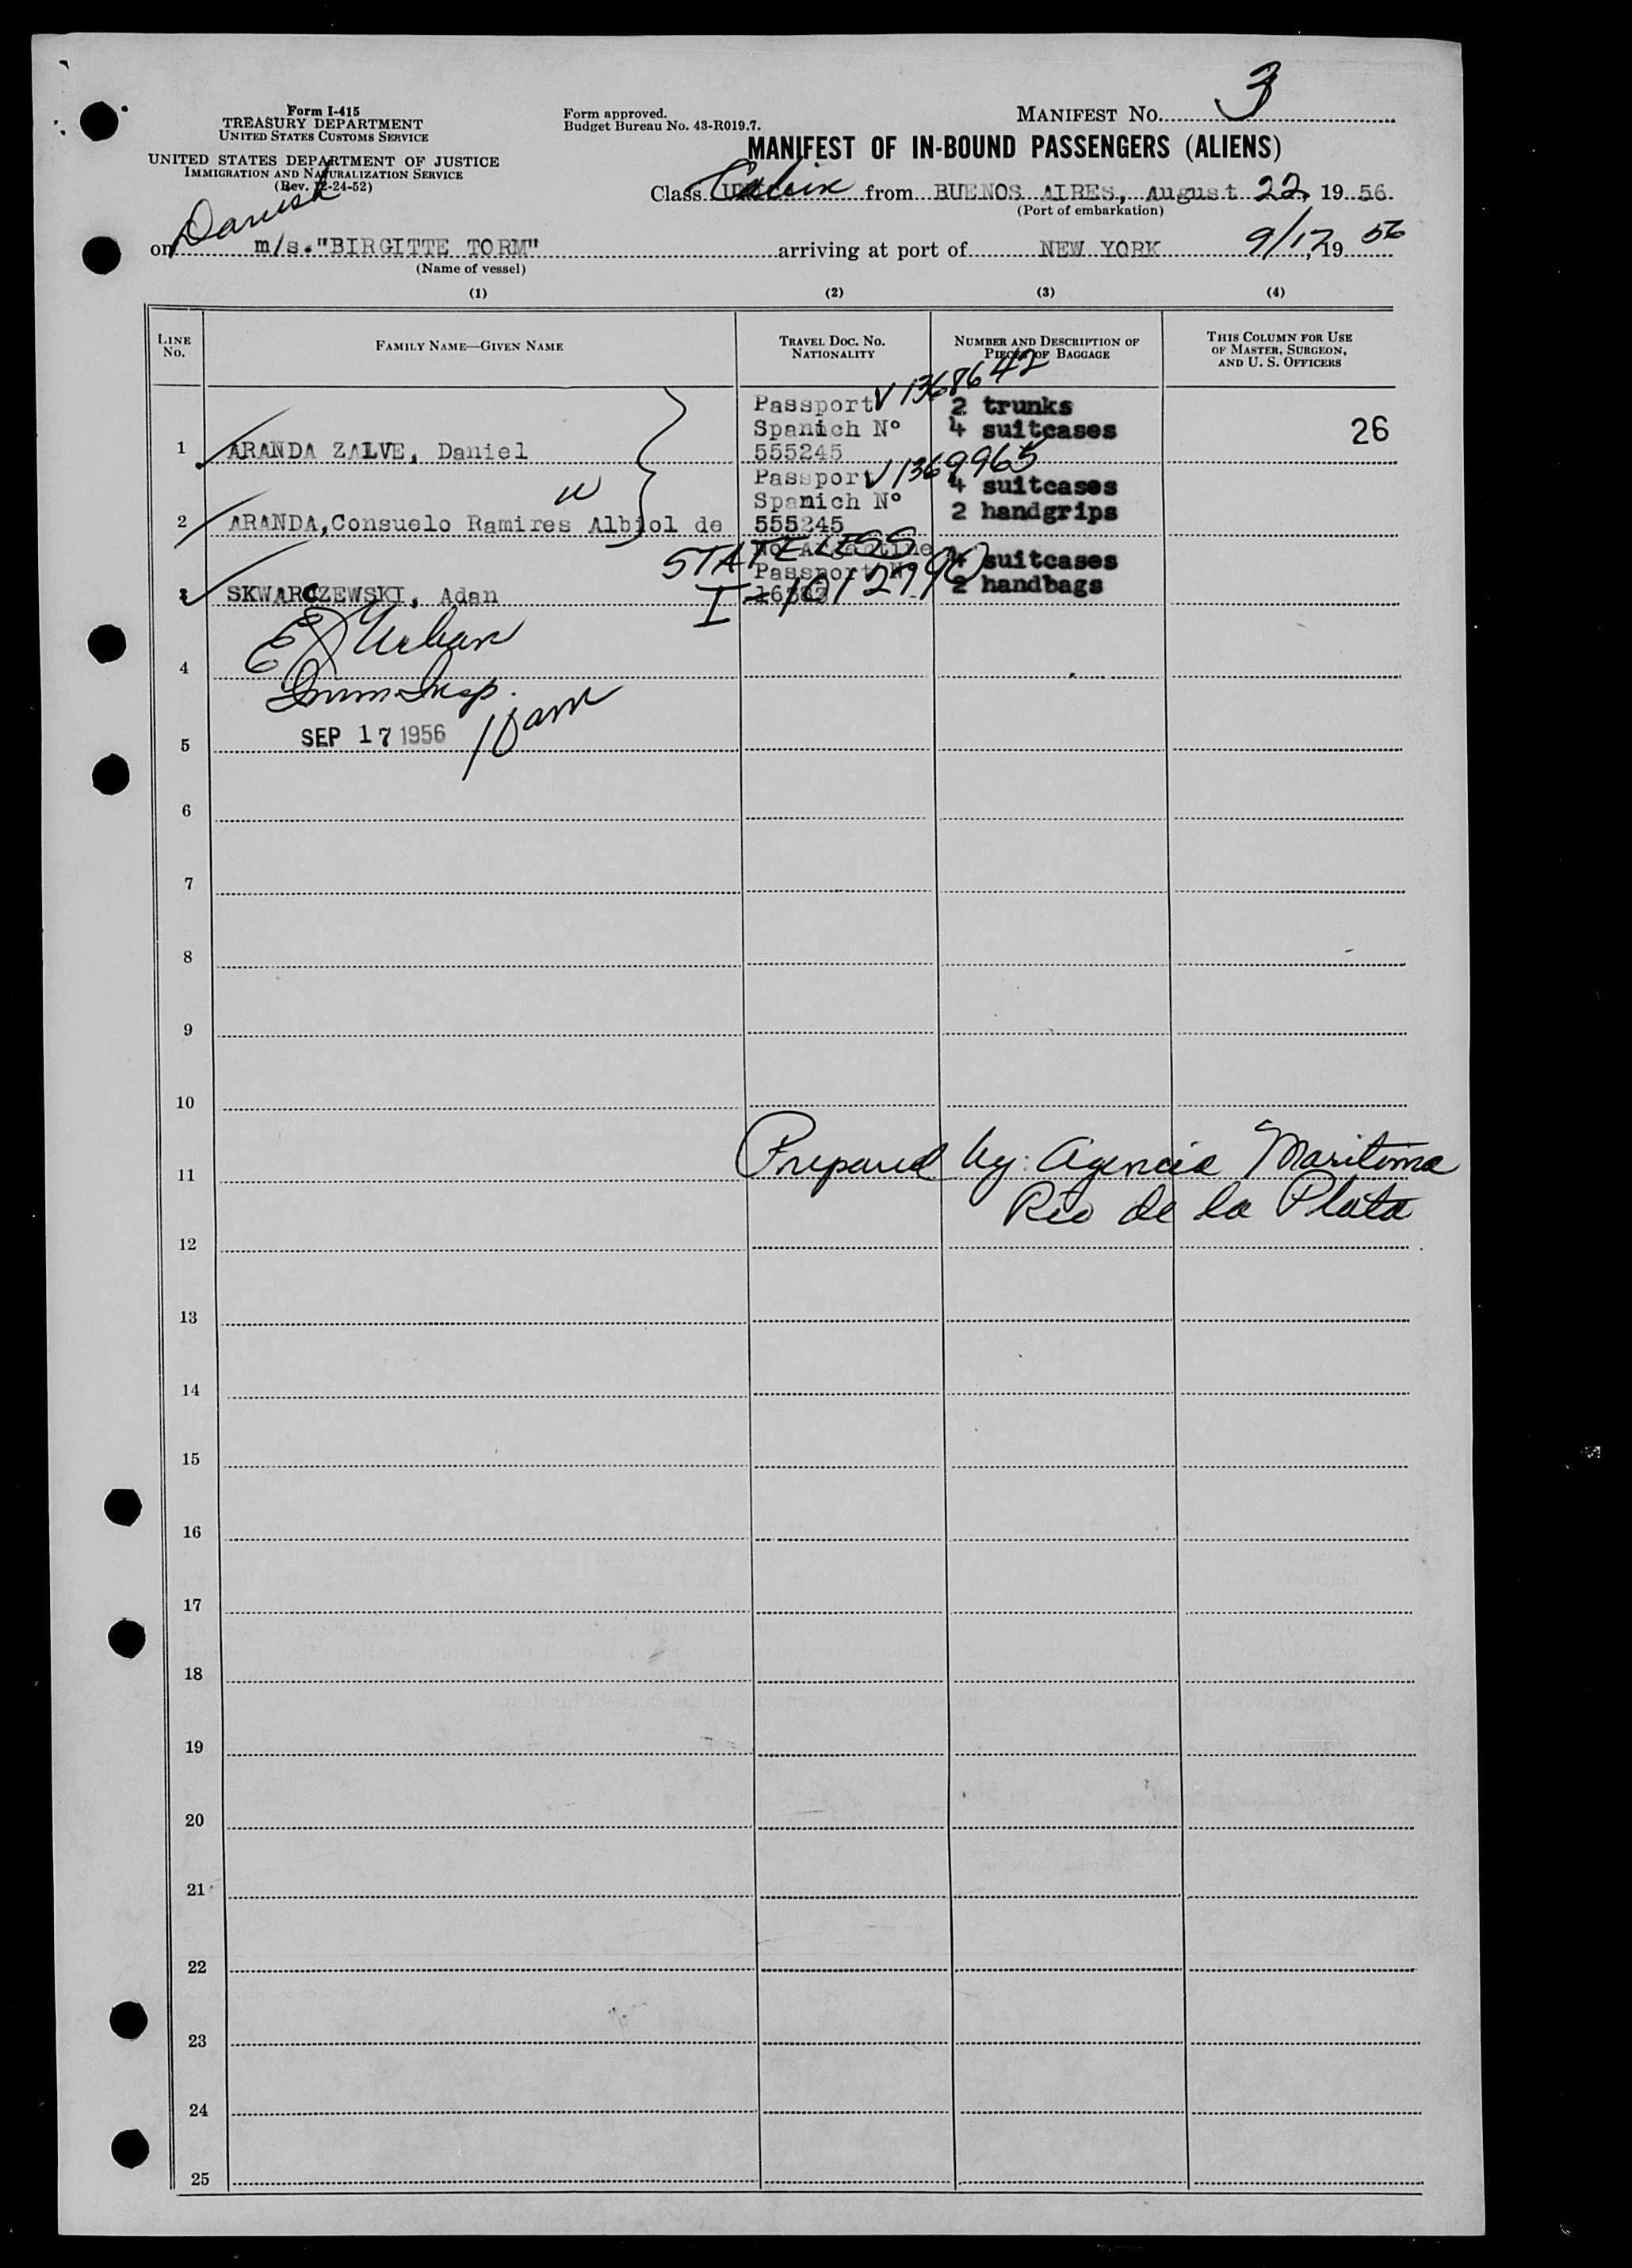 Form I-415
TREASURY DEPARTMENT
UNITED STATES CUSTOMS SERVICE
UNITED STATES DEPARTMENT OF JUSTICE
IMMIGRATION AND NATURALIZATION SERVICE
(Rev. 12-24-52)
Form approved.
Budget Bureau No. 43-R019.7.
MANIFEST No. 3
MANIFEST OF IN-BOUND PASSENGERS (ALIENS)
Class Cabin from BUENOS AIRES, August 22, 19 56.
(Port of embarkation)
Danish
on m/s."BIRGITTE TORM" arriving at port of NEW YORK 9/17, 19 56
(Name of vessel)
(1) (2) (3) (4)
LINE No. FAMILY NAME—GIVEN NAME TRAVEL DOC. NO. NATIONALITY NUMBER AND DESCRIPTION OF PIECES OF BAGGAGE THIS COLUMN FOR USE OF MASTER, SURGEON, AND U. S. OFFICERS
Passport V1368642 2 trunks
Spanich Nº 4 suitcases 26
1 ARANDA ZALVE, Daniel 555245
Passport V1369965 4 suitcases
W Spanich Nº 2 handgrips
2 ARANDA,Consuelo Ramires Albiol de 555245
STATELESS
No Argentine 4 suitcases
Passport Nº 2 handbags
3 SKWARCZEWSKI, Adan I-1012790
E J Urban
4 Imm. Insp.
5 SEP 17 1956 10 am
6
7
8
9
10
11 Prepared by: Agencia Maritima
Rio de la Plata
12
13
14
15
16
17
18
19
20
21
22
23
24
25